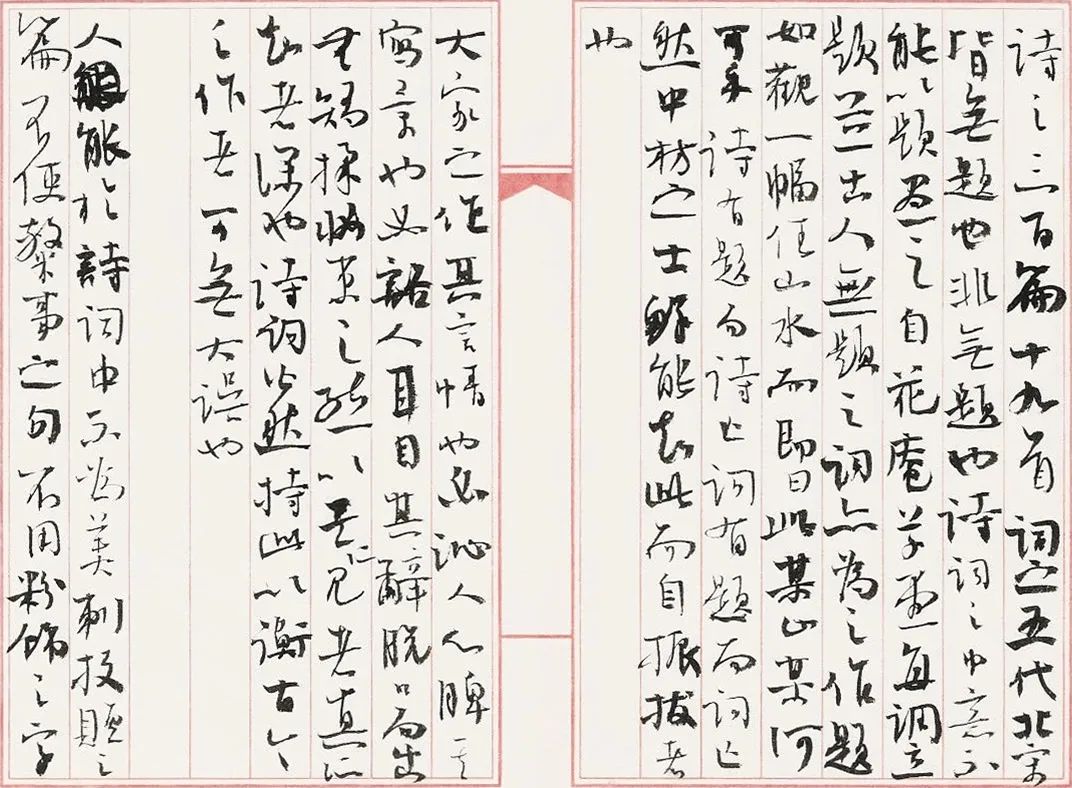 詩之三百篇十九首詞之五代北宋
皆無題也非無題也詩詞之中意不
能以題盡之自花庵草堂每調立
題並古人無題之詞亦為之作題
如觀一幅佳山水而即曰此某山某河
可乎詩有題而詩亡詞有題而詞亡
然中材之士鮮能知此而自振拔者
也
大家之作其言情也必沁人心脾其
寫景也必豁人耳目其辭脫口而出
無矯揉妝束之態以其所見者真所
知者深也詩詞皆然持此以衡古今
之作者可無大誤也
人能於詩詞中不為美刺投贈之
篇不使隸事之句不用粉飾之字